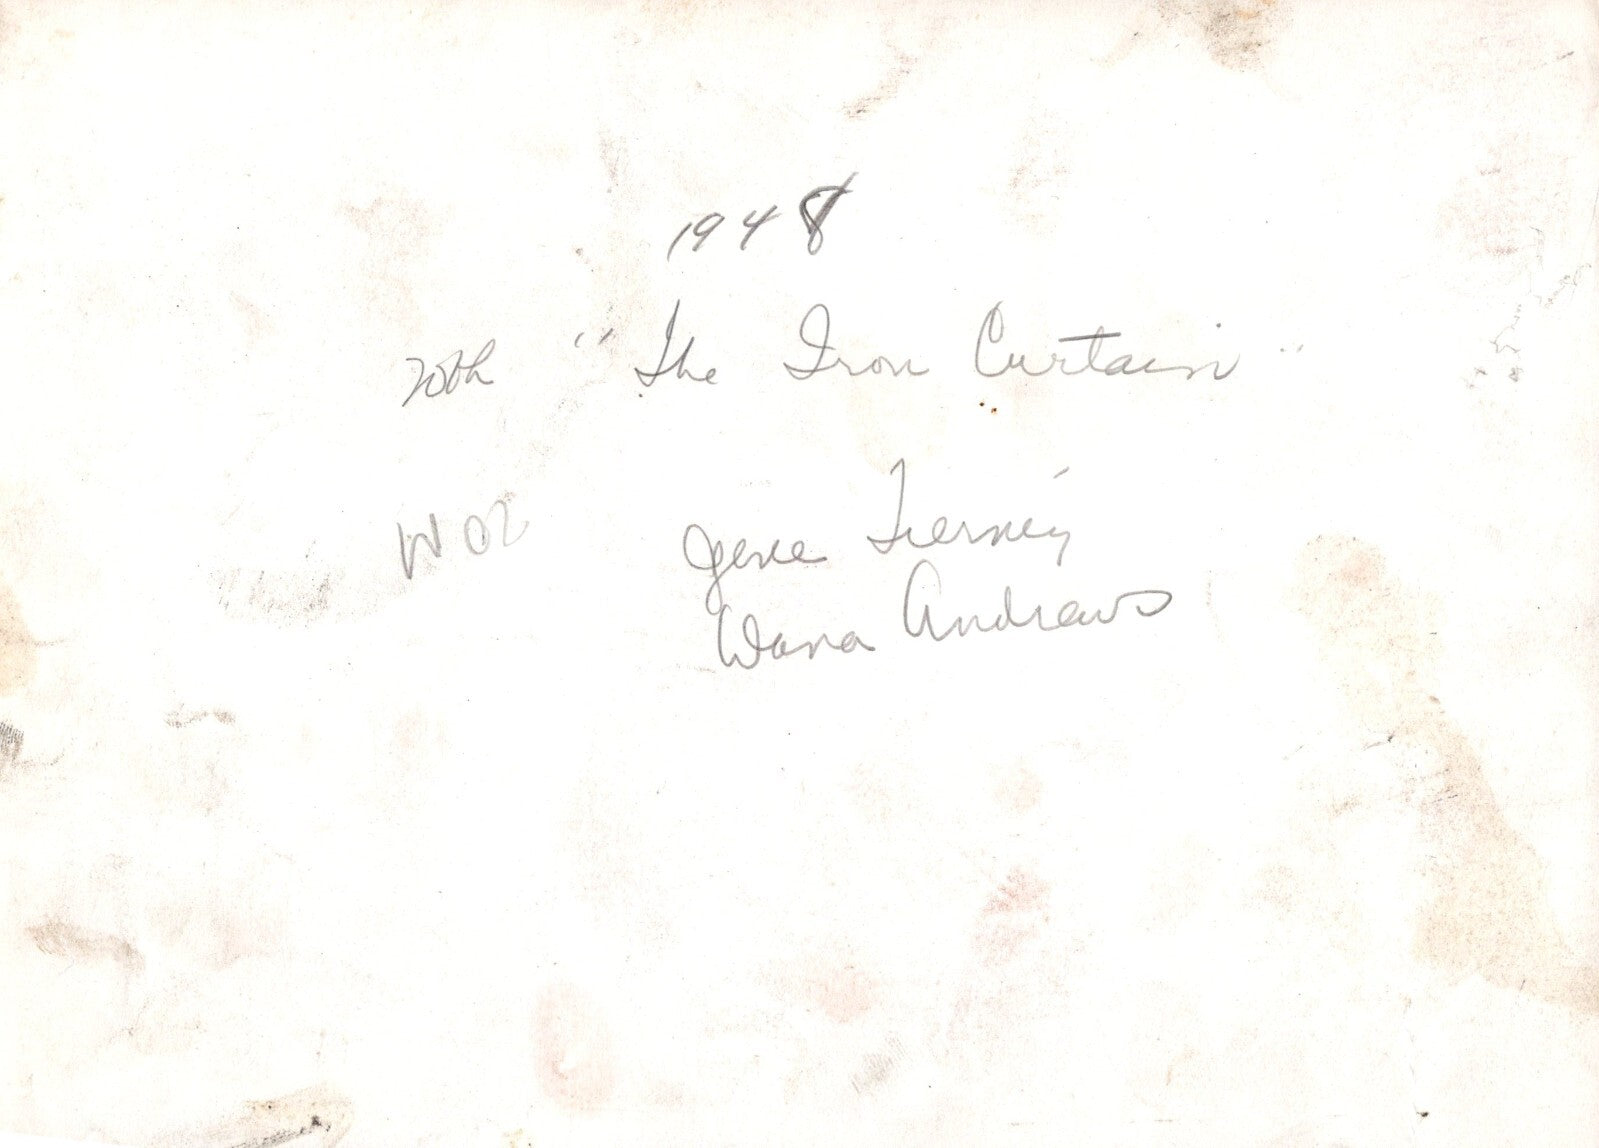 1948
20th "The Iron Curtain"
W02
Gene Tierney
Dana Andrews